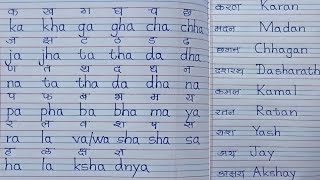 क ख ग घ च छ
ka kha ga gha cha chha
ज झ ट ठ ड ढ
ja jha ta tha da dha
ण त थ द ध न
na ta tha da dha na
प फ ब भ म य
pa pha ba bha ma ya
र ल व श ष स
ra la va/wa sha sha sa
ह ळ क्ष ज्ञ
ha la ksha dnya
करण Karan
मदन Madan
छगन Chhagan
दशरथ Dasharath
कमल Kamal
रतन Ratan
यश Yash
जय Jay
अक्षय Akshay